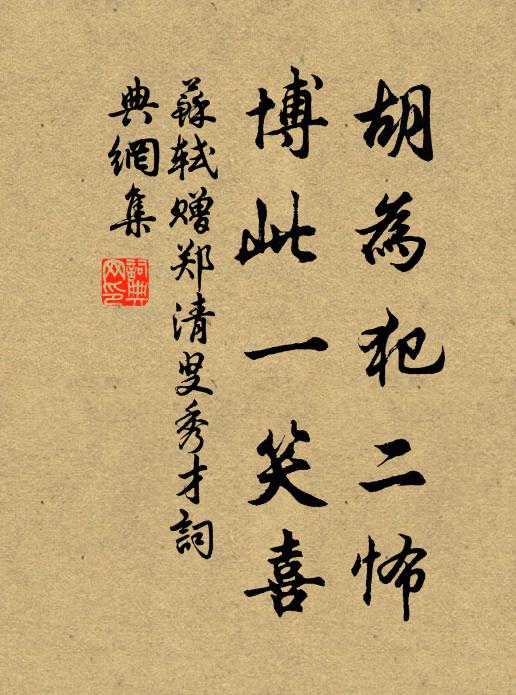 胡為犯二怖
博此一笑喜
蘇軾贈郑清叟秀才詞
典網集
詞典网印